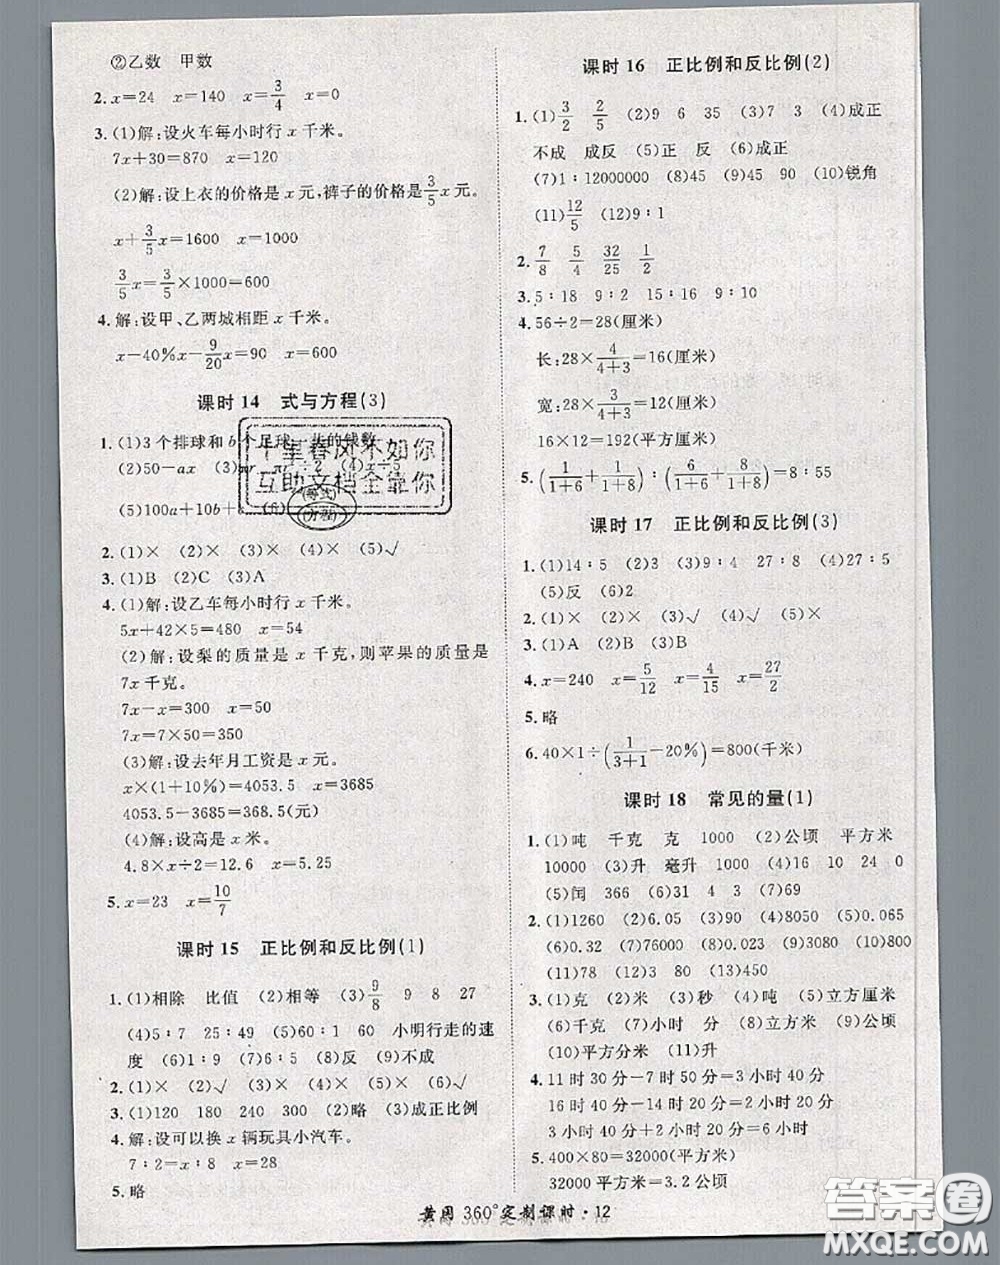 ②乙数 甲数
2. x=24 x=140 x=3/4 x=0
3. (1)解:设火车每小时行 x 千米。
7x+30=870 x=120
(2)解:设上衣的价格是 x 元,裤子的价格是3/5x 元。
x+3/5x=1600 x=1000
3/5x=3/5×1000=600
4. 解:设甲、乙两城相距 x 千米。
x-40%x-9/20x=90 x=600
课时 14 式与方程(3)
1. (1)3个排球和 b 个足球一共的钱数
(2)50-ax
(5)100a+10b+
(等式
(方程)
2. (1)× (2)× (3)× (4)× (5)√
3. (1)B (2)C (3)A
4. (1)解:设乙车每小时行 x 千米。
5x+42×5=480 x=54
(2)解:设梨的质量是 x 千克,则苹果的质量是
7x 千克。
7x-x=300 x=50
7x=7×50=350
(3)解:设去年月工资是 x 元。
x×(1+10%)=4053.5 x=3685
4053.5-3685=368.5(元)
(4)解:设高是 x 米。
4.8×x÷2=12.6 x=5.25
5. x=23 x=10/7
课时 15 正比例和反比例(1)
1. (1)相除 比值 (2)相等 (3)9/8 9 8 27
(4)5:7 25:49 (5)60:1 60 小明行走的速
度 (6)1:9 (7)6:5 (8)反 (9)不成
2. (1)× (2)√ (3)× (4)× (5)× (6)√
3. (1)120 180 240 300 (2)略 (3)成正比例
4. 解:设可以换 x 辆玩具小汽车。
7:2=x:8 x=28
5. 略
课时 16 正比例和反比例(2)
1. (1)3/2 2/5 (2)9 6 35 (3)7 3 (4)成正
不成 成反 (5)正 反 (6)成正
(7)1:12000000 (8)45 (9)45 90 (10)锐角
(11)12/5 (12)9:1
2. 7/8 5/4 32/25 1/2
3. 5:18 9:2 15:16 9:10
4. 56÷2=28(厘米)
长:28×4/(4+3)=16(厘米)
宽:28×3/(4+3)=12(厘米)
16×12=192(平方厘米)
5. (1/(1+6)+1/(1+8)):(6/(1+6)+8/(1+8))=8:55
课时 17 正比例和反比例(3)
1. (1)14:5 (2)3 (3)9:4 27:8 (4)27:5
(5)反 (6)2
2. (1)× (2)× (3)√ (4)√ (5)×
3. (1)A (2)B (3)B
4. x=240 x=5/12 x=4/15 x=27/2
5. 略
6. 40×1÷(1/(3+1)-20%)=800(千米)
课时 18 常见的量(1)
1. (1)吨 千克 克 1000 (2)公顷 平方米
10000 (3)升 毫升 1000 (4)16 10 24 0
(5)闰 366 (6)31 4 3 (7)69
2. (1)1260 (2)6.05 (3)90 (4)8050 (5)0.065
(6)0.32 (7)76000 (8)0.023 (9)0.06 (10)800
(11)78
3. (1)克 (2)米 (3)秒 (4)吨 (5)立方厘米
(6)千克 (7)小时 分 (8)立方米 (9)公顷
(10)平方分米 (11)升
4. 11时30分-7时50分=3小时40分
16时40分-14时20分=2小时20分
3小时40分+2小时20分=6小时
5. 400×80=32000(平方米)
32000平方米=3.2公顷
黄冈 360°定制课时·12
千里春风不如你
互助文档全靠你
答案圈
MXQE.COM